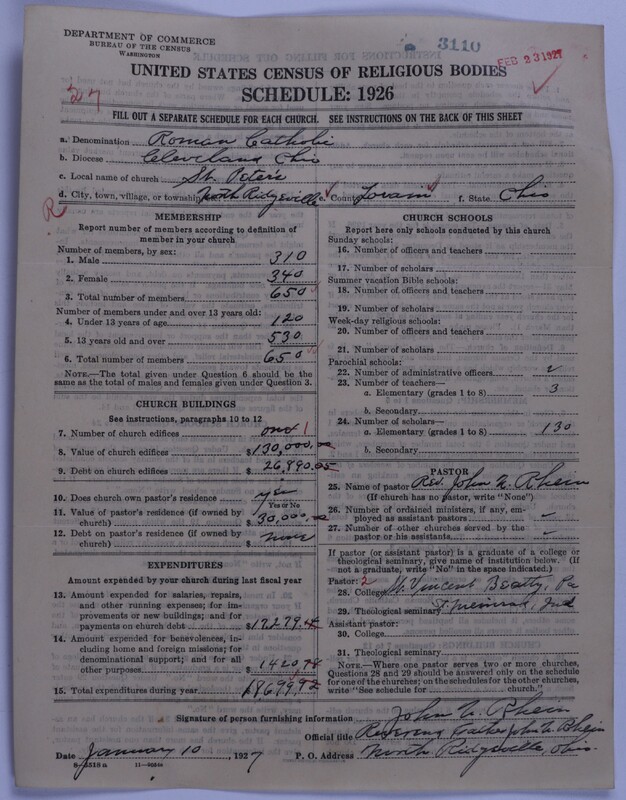 DEPARTMENT OF COMMERCE
BUREAU OF THE CENSUS
WASHINGTON
3110
FEB 23 1927
27
UNITED STATES CENSUS OF RELIGIOUS BODIES
SCHEDULE: 1926
FILL OUT A SEPARATE SCHEDULE FOR EACH CHURCH. SEE INSTRUCTIONS ON THE BACK OF THIS SHEET
a. Denomination Roman Catholic
b. Diocese Cleveland Ohio
c. Local name of church St. Peter's
d. City, town, village, or township North Ridgeville e. County Lorain f. State Ohio
R
MEMBERSHIP
Report number of members according to definition of
member in your church
Number of members, by sex:
1. Male 310
2. Female 340
3. Total number of members 650
Number of members under and over 13 years old:
4. Under 13 years of age 120
5. 13 years old and over 530
6. Total number of members 650
NOTE.—The total given under Question 6 should be
same as the total of males and females given under Question 3.
CHURCH BUILDINGS
See instructions, paragraphs 10 to 12
7. Number of church edifices one 1
8. Value of church edifices $130,000.00
9. Debt on church edifices $26,990.05
10. Does church own pastor's residence yes
Yes or No
11. Value of pastor's residence (if owned by
church) $30,000.00
12. Debt on pastor's residence (if owned by
church) $ none
EXPENDITURES
Amount expended by your church during last fiscal year
13. Amount expended for salaries, repairs,
and other running expenses; for im-
provements or new buildings; and for
payments on church debt $17279.
14. Amount expended for benevolences, in-
cluding home and foreign missions; for
denominational support; and for all
other purposes $1420.
15. Total expenditures during year
CHURCH SCHOOLS
Report here only schools conducted by this church
Sunday schools:
16. Number of officers and teachers
17. Number of scholars
Summer vacation Bible schools:
18. Number of officers and teachers
19. Number of scholars
Week-day religious schools:
20. Number of officers and teachers
21. Number of scholars
Parochial schools:
22. Number of administrative officers
23. Number of teachers—
a. Elementary (grades 1 to 8) 3
b. Secondary
24. Number of scholars—
a. Elementary (grades 1 to 8) 130
b. Secondary
PASTOR
25. Name of pastor Rev. John N. Rhein
(If church has no pastor, write "None")
26. Number of ordained ministers, if any, em-
ployed as assistant pastors
27. Number of other churches served by the
pastor or his assistants
If pastor (or assistant pastor) is a graduate of a college or
theological seminary, give name of institution below. (If
not a graduate, write "No" in the space indicated.)
Pastor: 2
28. College St. Vincent Beatty, Pa
29. Theological seminary St. Meinrad, Ind
Assistant pastor:
30. College
31. Theological seminary
NOTE.—Where one pastor serves two or more churches,
Questions 28 and 29 should be answered only on the schedule
for one of the churches; on the schedules for the other churches,
write "See schedule for church."
Signature of person furnishing information John N. Rhein
Official title Reverend Father John N. Rhein
Date January 10, 1927 P. O. Address North Ridgeville, Ohio.
8-5518a